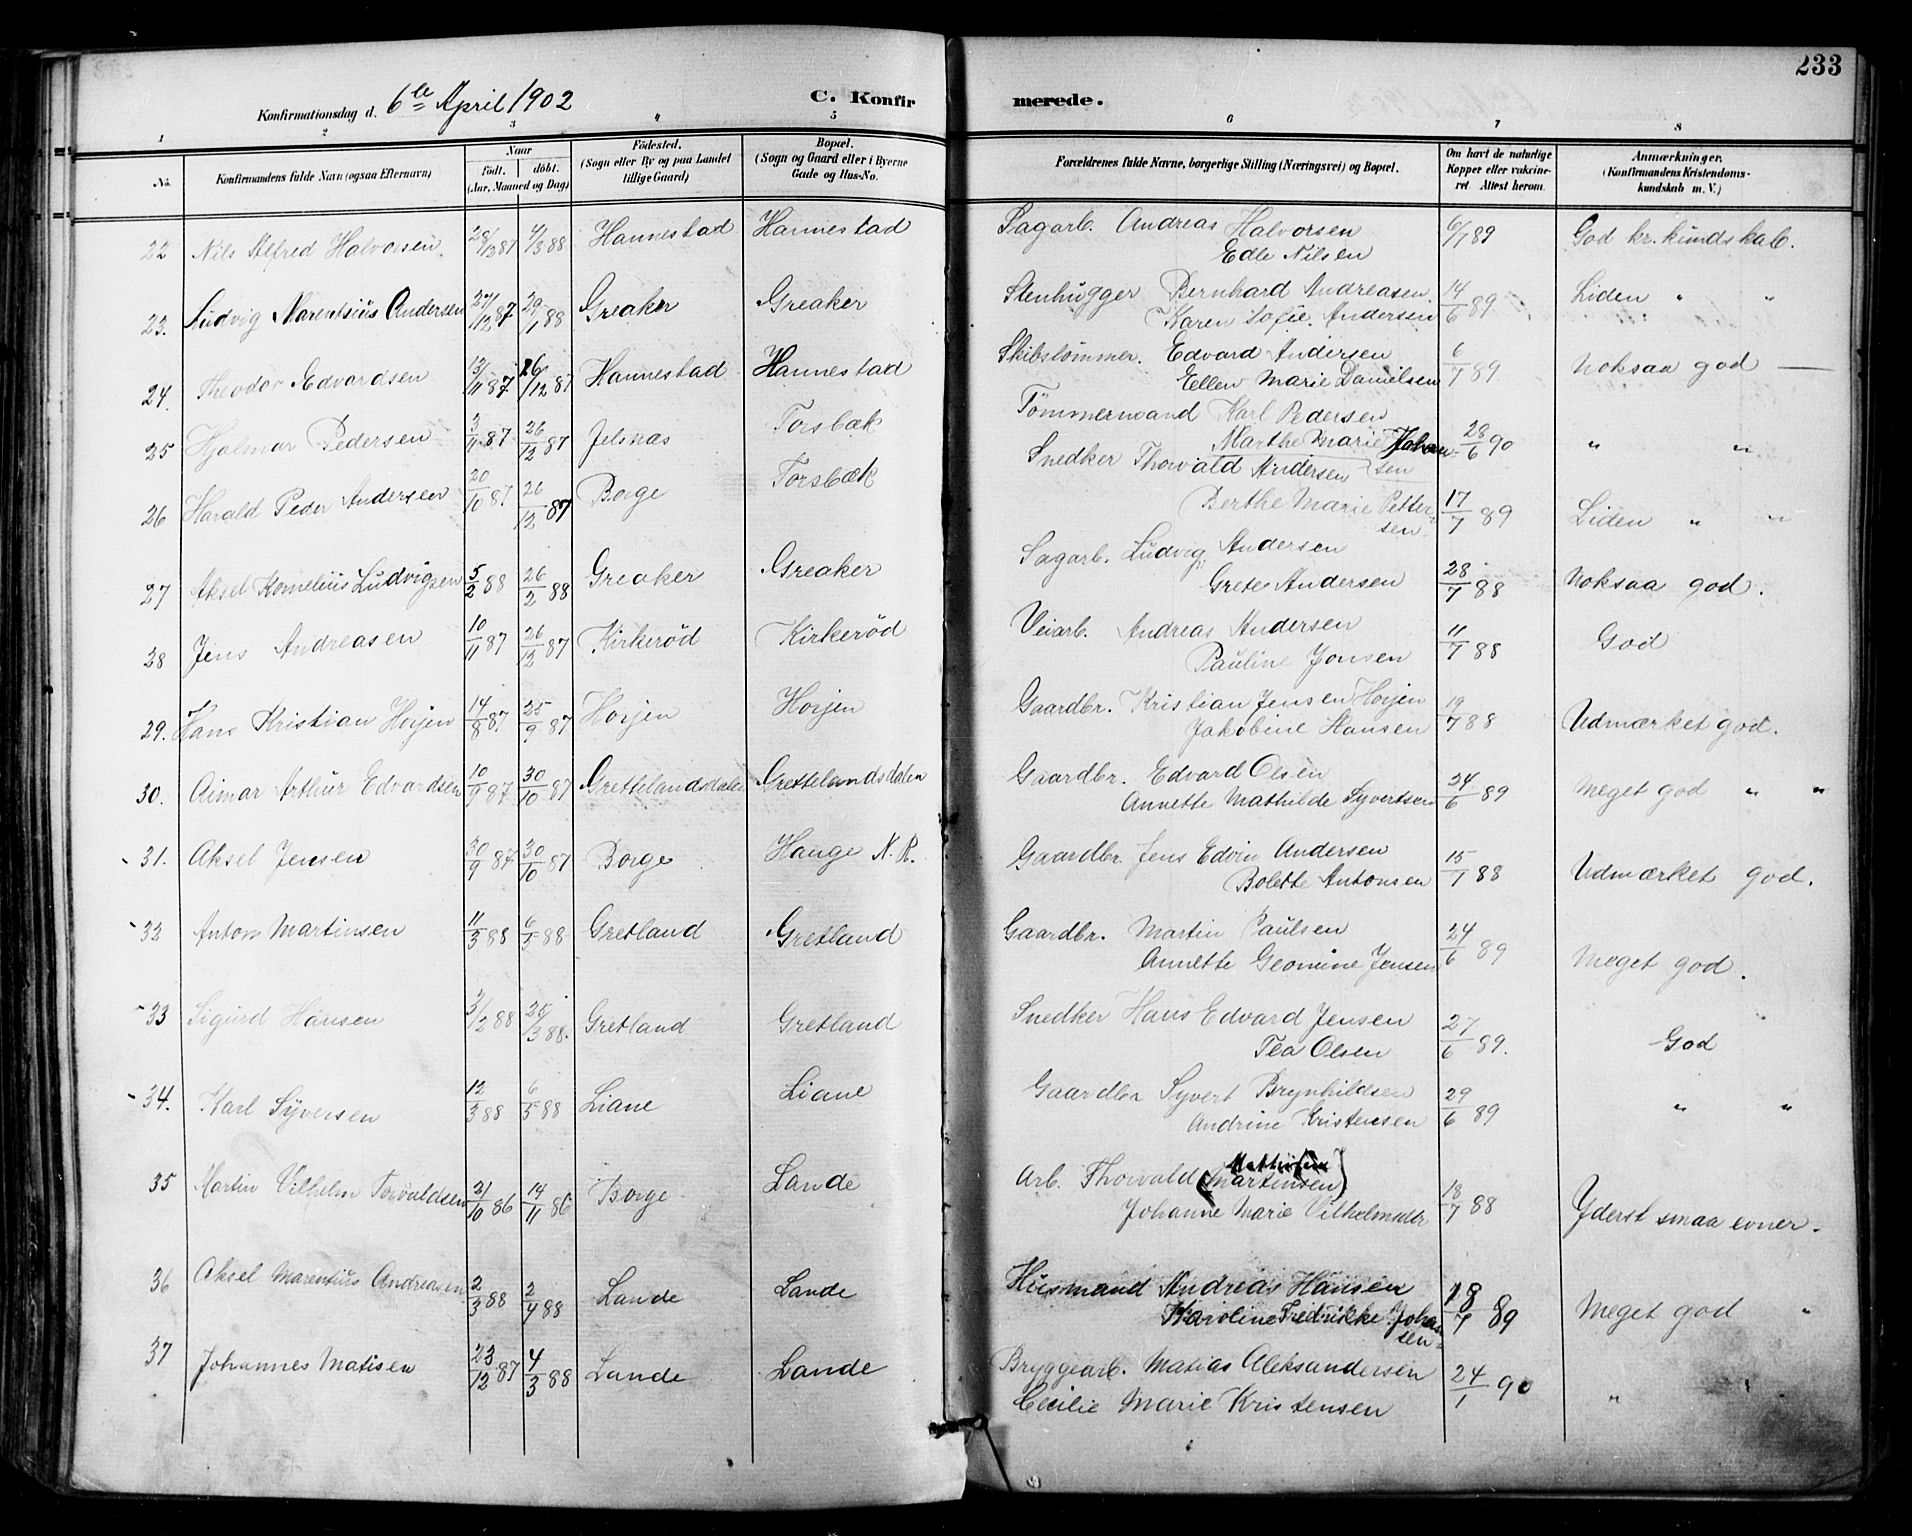 233
Konfirmationsdag d. 6te April 1902
C. Konfirmerede.
1 2 3 4 5 6 7 8
No. | Konfirmandens fulde Navn (ogsaa Efternavn) | Naar født. døbt. (Aar, Maaned og Dag) | Fødested. (Sogn eller By og paa Landet tillige Gaard) | Bopæl. (Sogn og Gaard eller i Byerne Gade og Hus-No. | Forældrenes fulde Navne, borgerlige Stilling (Næringsvei) og Bopæl. | Om havt de naturlige Kopper eller vakcineret. Attest herom. | Anmærkninger. (Konfirmandens Kristendomskundskab m. V.)
22 Nils Alfred Halvorsen. 28/12 87 4/3 88 Hannestad Hannestad Sagarb. Andreas Halvorsen 6/7 89 God kr. kundskab.
Edle Nilsen
23. Ludvig Marentsius Andersen 27/12 87 29/1 88 Greaker Greaker Stenhugger Bernhard Andreasen. 14/6 89 Liden " "
Karen Sofie. Andersen
24. Theodor Edvardsen 13/11 87 26/12 87 Hannestad Hannestad Skibstømmer. Edvard Andersen 6/7 89 Noksaa god —
Eellen Marie Danielsen
25 Hjalmar Pedersen 3/11 87 26/12 87 Jelsnæs Torsbæk Tømmermand Karl Pedersen 28/6 90 " "
Marthe Marie Johansen
26 Harald Peder Andersen 20/10 87. 26/12 87 Borge Torsbæk Snedker Thorvald Andersen 17/7 89 Liden " "
Berthe Marie Pettersen
27 Aksel Kornelius Ludvigsen 5/2 88 26/2 88 Greaker Greaker Sagarb. Ludvig Andersen 28/7 88 Noksaa god.
Grete Andersen
28 Jens Andreasen 10/11 87 26/12 87 Kirkerød Kirkerød Veiarb. Andreas Andersen 11/7 88 God
Pauline Jonsen
29. Hans Kristian Horjen 14/8 87. 25/9 87 Horjen Horjen Gaardbr. Kristian Jensen Horjen 19/7 88 Udmærket god.
Jakobine Hansen
30. Aimar Arthur Edvardsen 10/9 87 30/10 87 Grettelandsdalen Grettelandsdalen Gaardbr. Edvard Olsen 24/6 89 Meget god " "
Annette Mathilde Syvertsen
31. Aksel Jensen 30/9 87 30/10 87 Borge Hauge N. R. Gaardbr. Jens Edvin Andersen 15/1 88 Udmærket god.
Bolette Antonsen
32 Anton Martinsen 11/3 88 6/5 88 Gretland Gretland Gaardbr. Martin Paulsen 24/6 89 Meget god.
Annette Geonine Jensen
33 Sigurd Hansen 3/2 88 25/3 88. Gretland Gretland Snedker Hans Edvard Jensen 27/6 89. God
Tea Olsen
34. Karl Syversen 12/3 88 6/5 88 Liane Liane Gaardbr Syvert Brynhildsen 29/6 89 " "
Andrine Kristensen
35 Martin Vilhelm Torvaldsen 31/10 86 14/11 86 Borge Lande Arb. Thorvald (Martinsen) Mathisen 18/7 88 Yderst smaa evner.
Johanne Marie Vilhelmsdtr
36 Aksel Marentius Andreasen 2/3 88 2/4 88 Lande Lande Husmand Andreas Hansen 18/7 89 Meget god "
Karoline Fredrikke Johansen
37 Johannes Matisen 23/12 87 4/3 88 Lande Lande Bryggearb. Matias Aleksandersen 24/1 90 " "
Cecilie Marie Kristensen